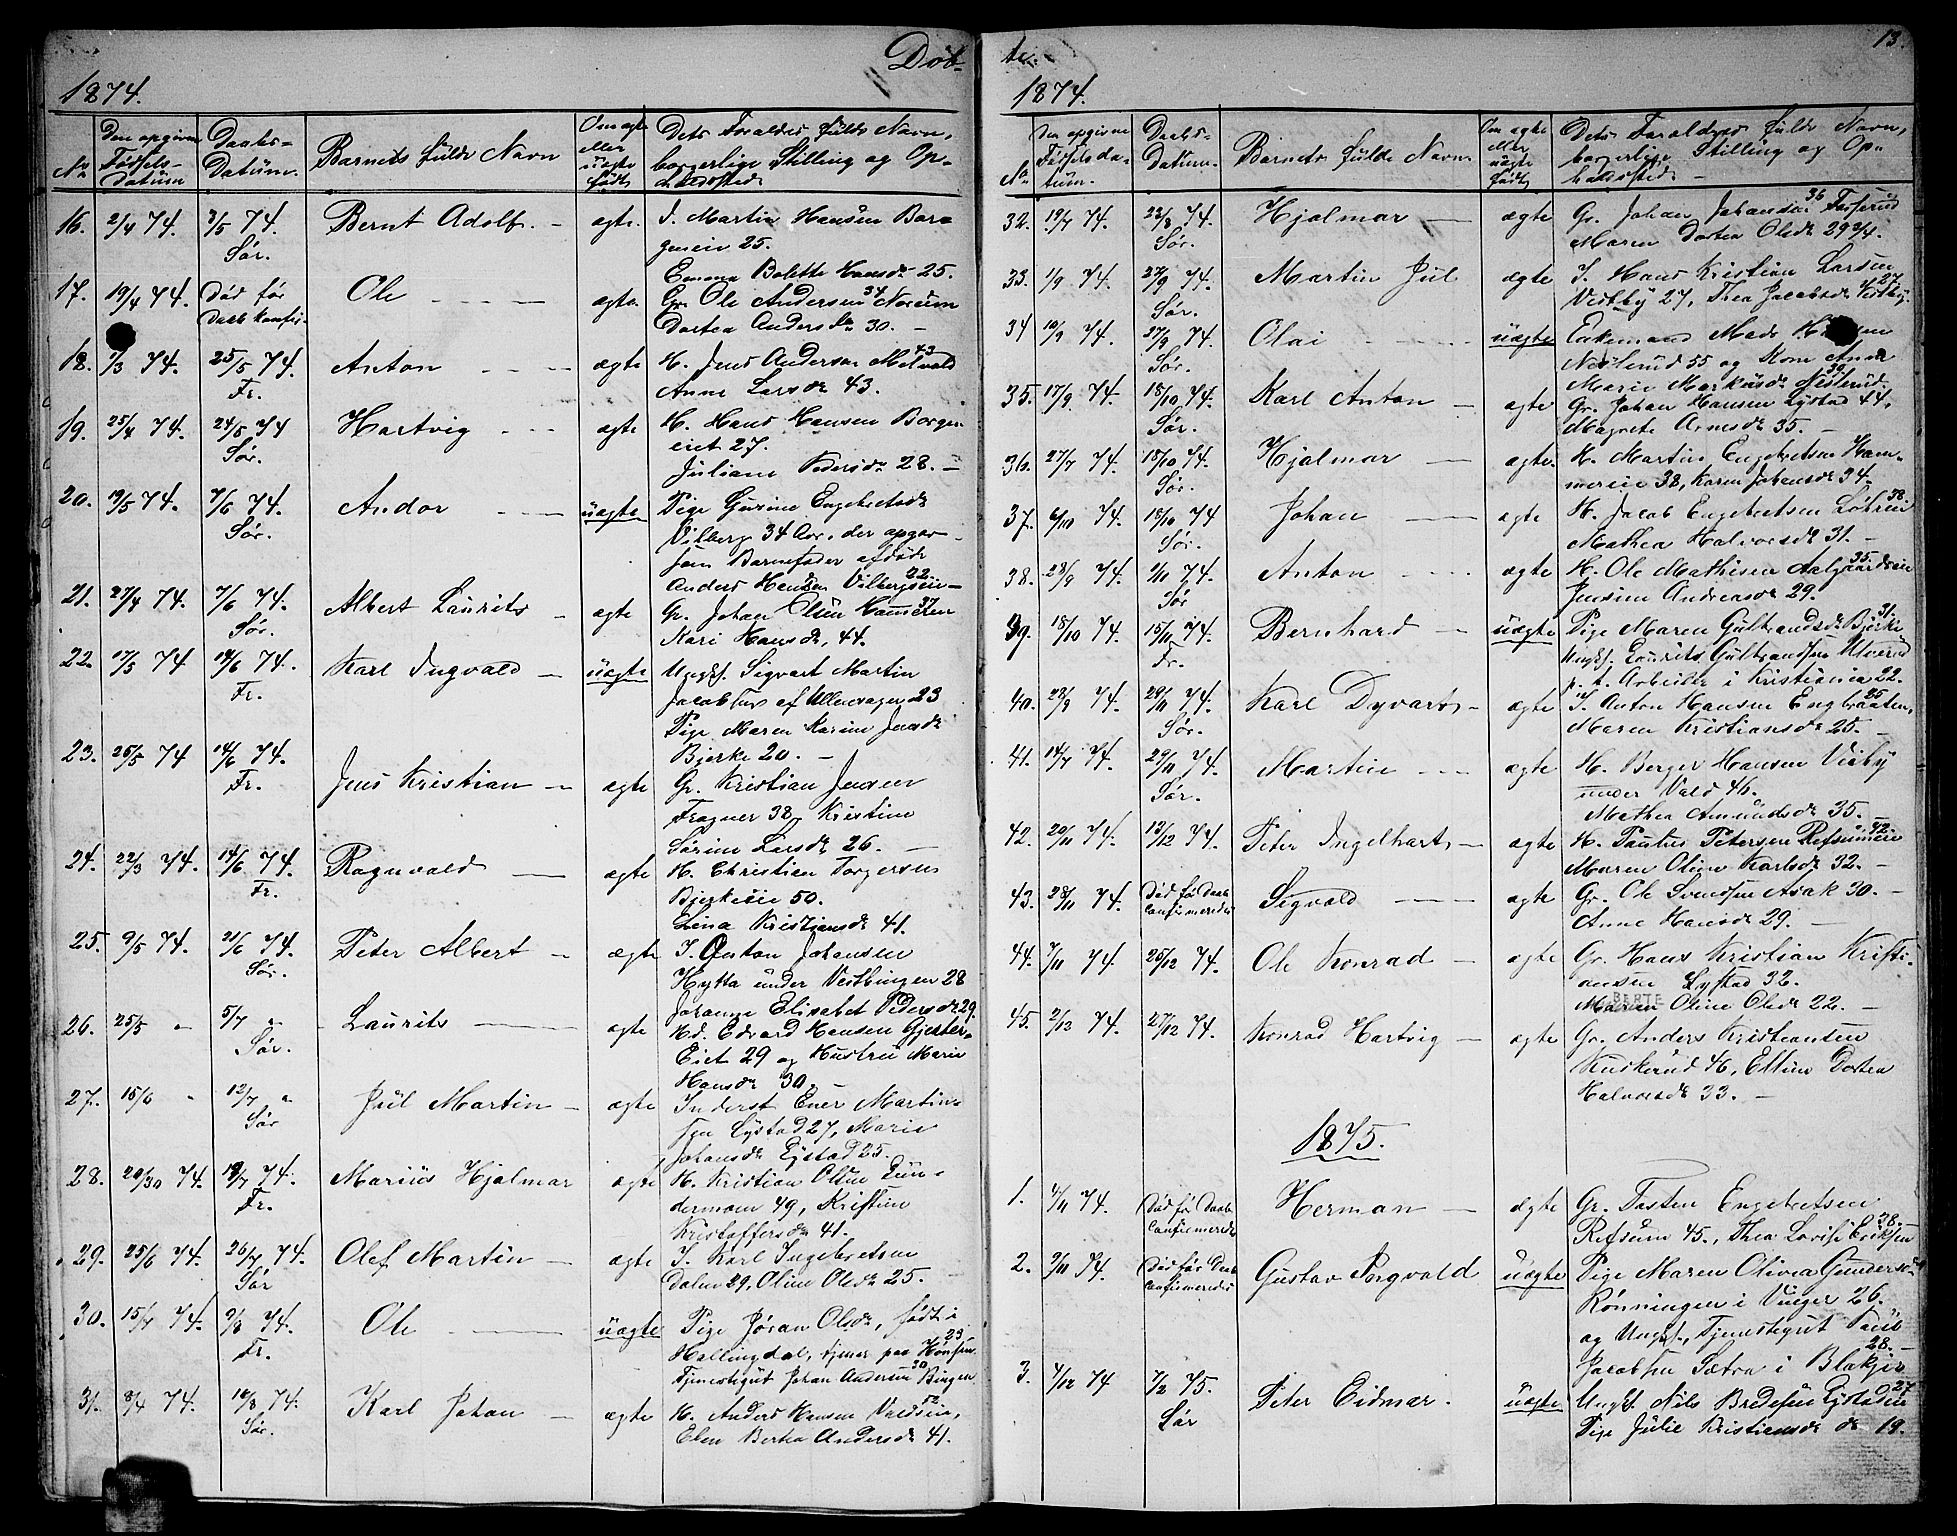 Døb-
1874.
No
Den opgivne Fødsels-datum
Daabs-Datum.
Barnets fulde Navn
Om ægte eller uægte født
Dets Forældres fulde Navn, borgerlige Stilling og Op-holdssted.
16. 2/4 74. 3/5 74. Bernt Adolf. ægte. I. Martin Hansen Bor-
Sør. geneie 25.
Emma Bolette Hansdr 25.
17. 19/4 74. Død før Ole ægte. Gr. Ole Andersen 34 Norum
Daab Dortea Andersdr 30.
18. 1/3 74. 25/5 74. Anton ægte H. Jens Andersen 43
Fr. Anne Larsdr 43.
19. 25/4 74. 24/5 74 Hartvig ægte H. Hans Hansen Borgen
Sør. eiet 27.
Juliane Pedersdr 28.
20. 19/5 74. 7/6 74. Andor uægte Pige Gurine Engebretsdr
Sør. Vilberg 34 Aar, der opgav
som Barnefader afdøde
Anders Hansen Vilbergseie 22
21. 27/4 74. 7/6 74. Albert Laurits ægte Gr. Johan Olsen 37
Sør. Kari Hansdr, 44.
22. 17/5 74 14/6 74. Karl Ingvald uægte Ungk. Sigvart Martin
Fr. Jacobsen af Ullensager 23
Pige Maren Karine Jensdr
Bjerke 20.
23. 26/5 74 14/6 74. Jens Kristian ægte Gr. Kristian Jensen
Fr. Fragner 38, Kristine
Sørine Larsdr 26.
24. 22/3 74. 14/6 74. Ragnvald ægte H. Christian Torgersen
Fr. Bjerkeeie 50.
Lina Kristiansdr 41.
25. 9/5 74. 21/6 74. Peter Albert ægte I. Anton Johansen
Sør. Hytta under Vestbingen 28
Johanne Elisabet Pedersdr 29.
26. 25/5 " 5/7 " Laurits ægte Hd. Edvard Hansen Gjester-
Sør. Eiet 29 og Hustru Marie
Hansdr 30.
27. 15/6 " 12/7 " Jul Martin ægte Inderst Ener Martin-
Sør sen Lystad 27, Marie
Johansdr Lystad 25.
28. 20/30 74. 19/7 74. Marius Hjalmar ægte H. Kristian Olsen Lun-
Fr. dermoen 49, Kristine
Kristoffersdr 41.
29. 25/6 74. 26/7 74. Olef Martin ægte I. Karl Ingebretsen
Sør Dalen 29, Oline Olsdr 25.
30. 15/7 74. 9/8 74. Ole uægte Pige Jøran Olsdr, født i
Fr. Hallingdal, tjener paa 23
Tjenestegut Johan Andersen 30 Bingen
31. 8/4 74. 16/8 74. Karl Johan ægte H. Anders Hansen Valdseie, 52
Sør. Elen Berthea Andersdr 41.
te.
13.
1874.
No.
Den opgivne Fødselsda-tum.
Daabs-datum.
Barnets fulde Navn
Om ægte eller uægte født
Dets Forældres fulde Navn, borgerlige Stilling og Op-holdssted
32. 19/7 74. 23/8 74. Hjalmar ægte Gr. Johan Johansen 36 Fosserud
Sør. Maren Dortea Olsdr 29 3/4.
33. 1/9 74. 27/9 74. Martin Jul ægte I. Hans Kristian Larsen
Sør. Vestby 27, Thea Jacobsdr Vestby 27
34 10/9 74. 27/9 74. Olai uægte Enkemand Mads
Sør. Nesterud 55 og Kone Anne
Marie Markusdr Nesterud. 39
35. 17/9 74. 18/10 74. Karl Anton ægte Gr. Johan Hansen Lystad 44,
Sør. Magnete Arnesdr 35.
36. 27/7 74. 18/10 74. Hjalmar ægte. H. Martin Engebretsen Ham-
Sør. mereie 38, Karen Johansdr 34.
37. 6/10 74. 18/10 74 Johan ægte H. Jacob Engebretsen 38.
Sør. Mathea Halvorsdr 31.
38. 28/9 74. 1/11 74. Anton ægte H. Ole Mathisen Aalgaardseie 35.
Sør Jensine Andreasdr 29.
39. 18/10 74. 15/11 74. Bernhard uægte Pige Maren Gulbrandsdr Bjerke 31.
Fr. Ungk. Laurits Gulbrandsen
p. t. Arbeider i Kristiania 22.
40. 23/9 74. 29/11 74. Karl Dyvarts ægte I. Anton Hansen Engbraaten, 25
Sør. Maren Kristiansdr 25.
41. 14/7 74. 29/11 74. Martin ægte H. Berger Hansen Viaby
Sør. under Vald 46.
Mathea Amundsdr 35.
42. 20/11 74. 13/12 74. Peter Ingelhart ægte H. Paulus Petersen Refsumeie 42.
Maren Oline Karlsdr 32.
43. 28/11 74. Død før Daab Sigvald ægte Gr. Ole Svendsen Asak 30.
confirmeredes Anne Hansdr 29.
44. 7/11 74. 25/12 74. Ole Konrad ægte Gr. Hans Kristian Kristi-
ansen Lystad 32.
BERTE
Maren Oline Olsdr 22.
45. 2/12 74. 27/12 74. Konrad Hartvig ægte Gr. Anders Kristiansen
Kuskerud 46, Elline Dortea
Halvorsdr 33.
1875.
1. 4/11 74. Død før Daab Herman ægte Gr. Tosten Engebretsen
confirmeredes Refsum 45., Thea Lovise Eriksen 38.
2. 2/11 74. Død før Daab Gustav Torgvald uægte Pige Maren Olivia Gundersdr
confirmeredes Rønningen i Vinger 26.
og Ungk., Tjenestegut Paul
Jacobsen Sætra i Blakjer 28.
3. 4/12 74 7/2 75. Peter Eidmar. uægte Ungk. Nils Bredesen Lystadeie 27
Sør Pige Julie Kristiansdr do 19.